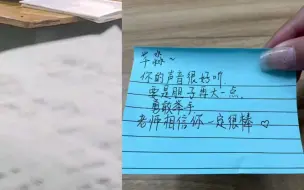 你的声音很好听
要是胆子再大一点,
勇敢举手
老师相信你一定很棒♡